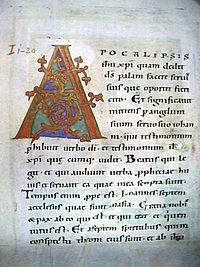 I 1-20
APOCALIPSIS
xpi quam dedit
ds palam facere
suis que oportet fieri
cito. Et significavit
mittens p angelum
suum servo suo iohan
ni. qui testimonium
phibuit verbo di. et testimonium
xpi vidit. Beatus qui le
git. et qui audiunt verba hui
us et servant ea quae in ea scripta sunt.
Tempus enim ppe est. septem
ecclesiis quae sunt in asia. Gratia vobis
et pax ab eo qui est et qui erat et qui
turus est. Et a septem spiritibus qui in
conspectu throni eius sunt et ab